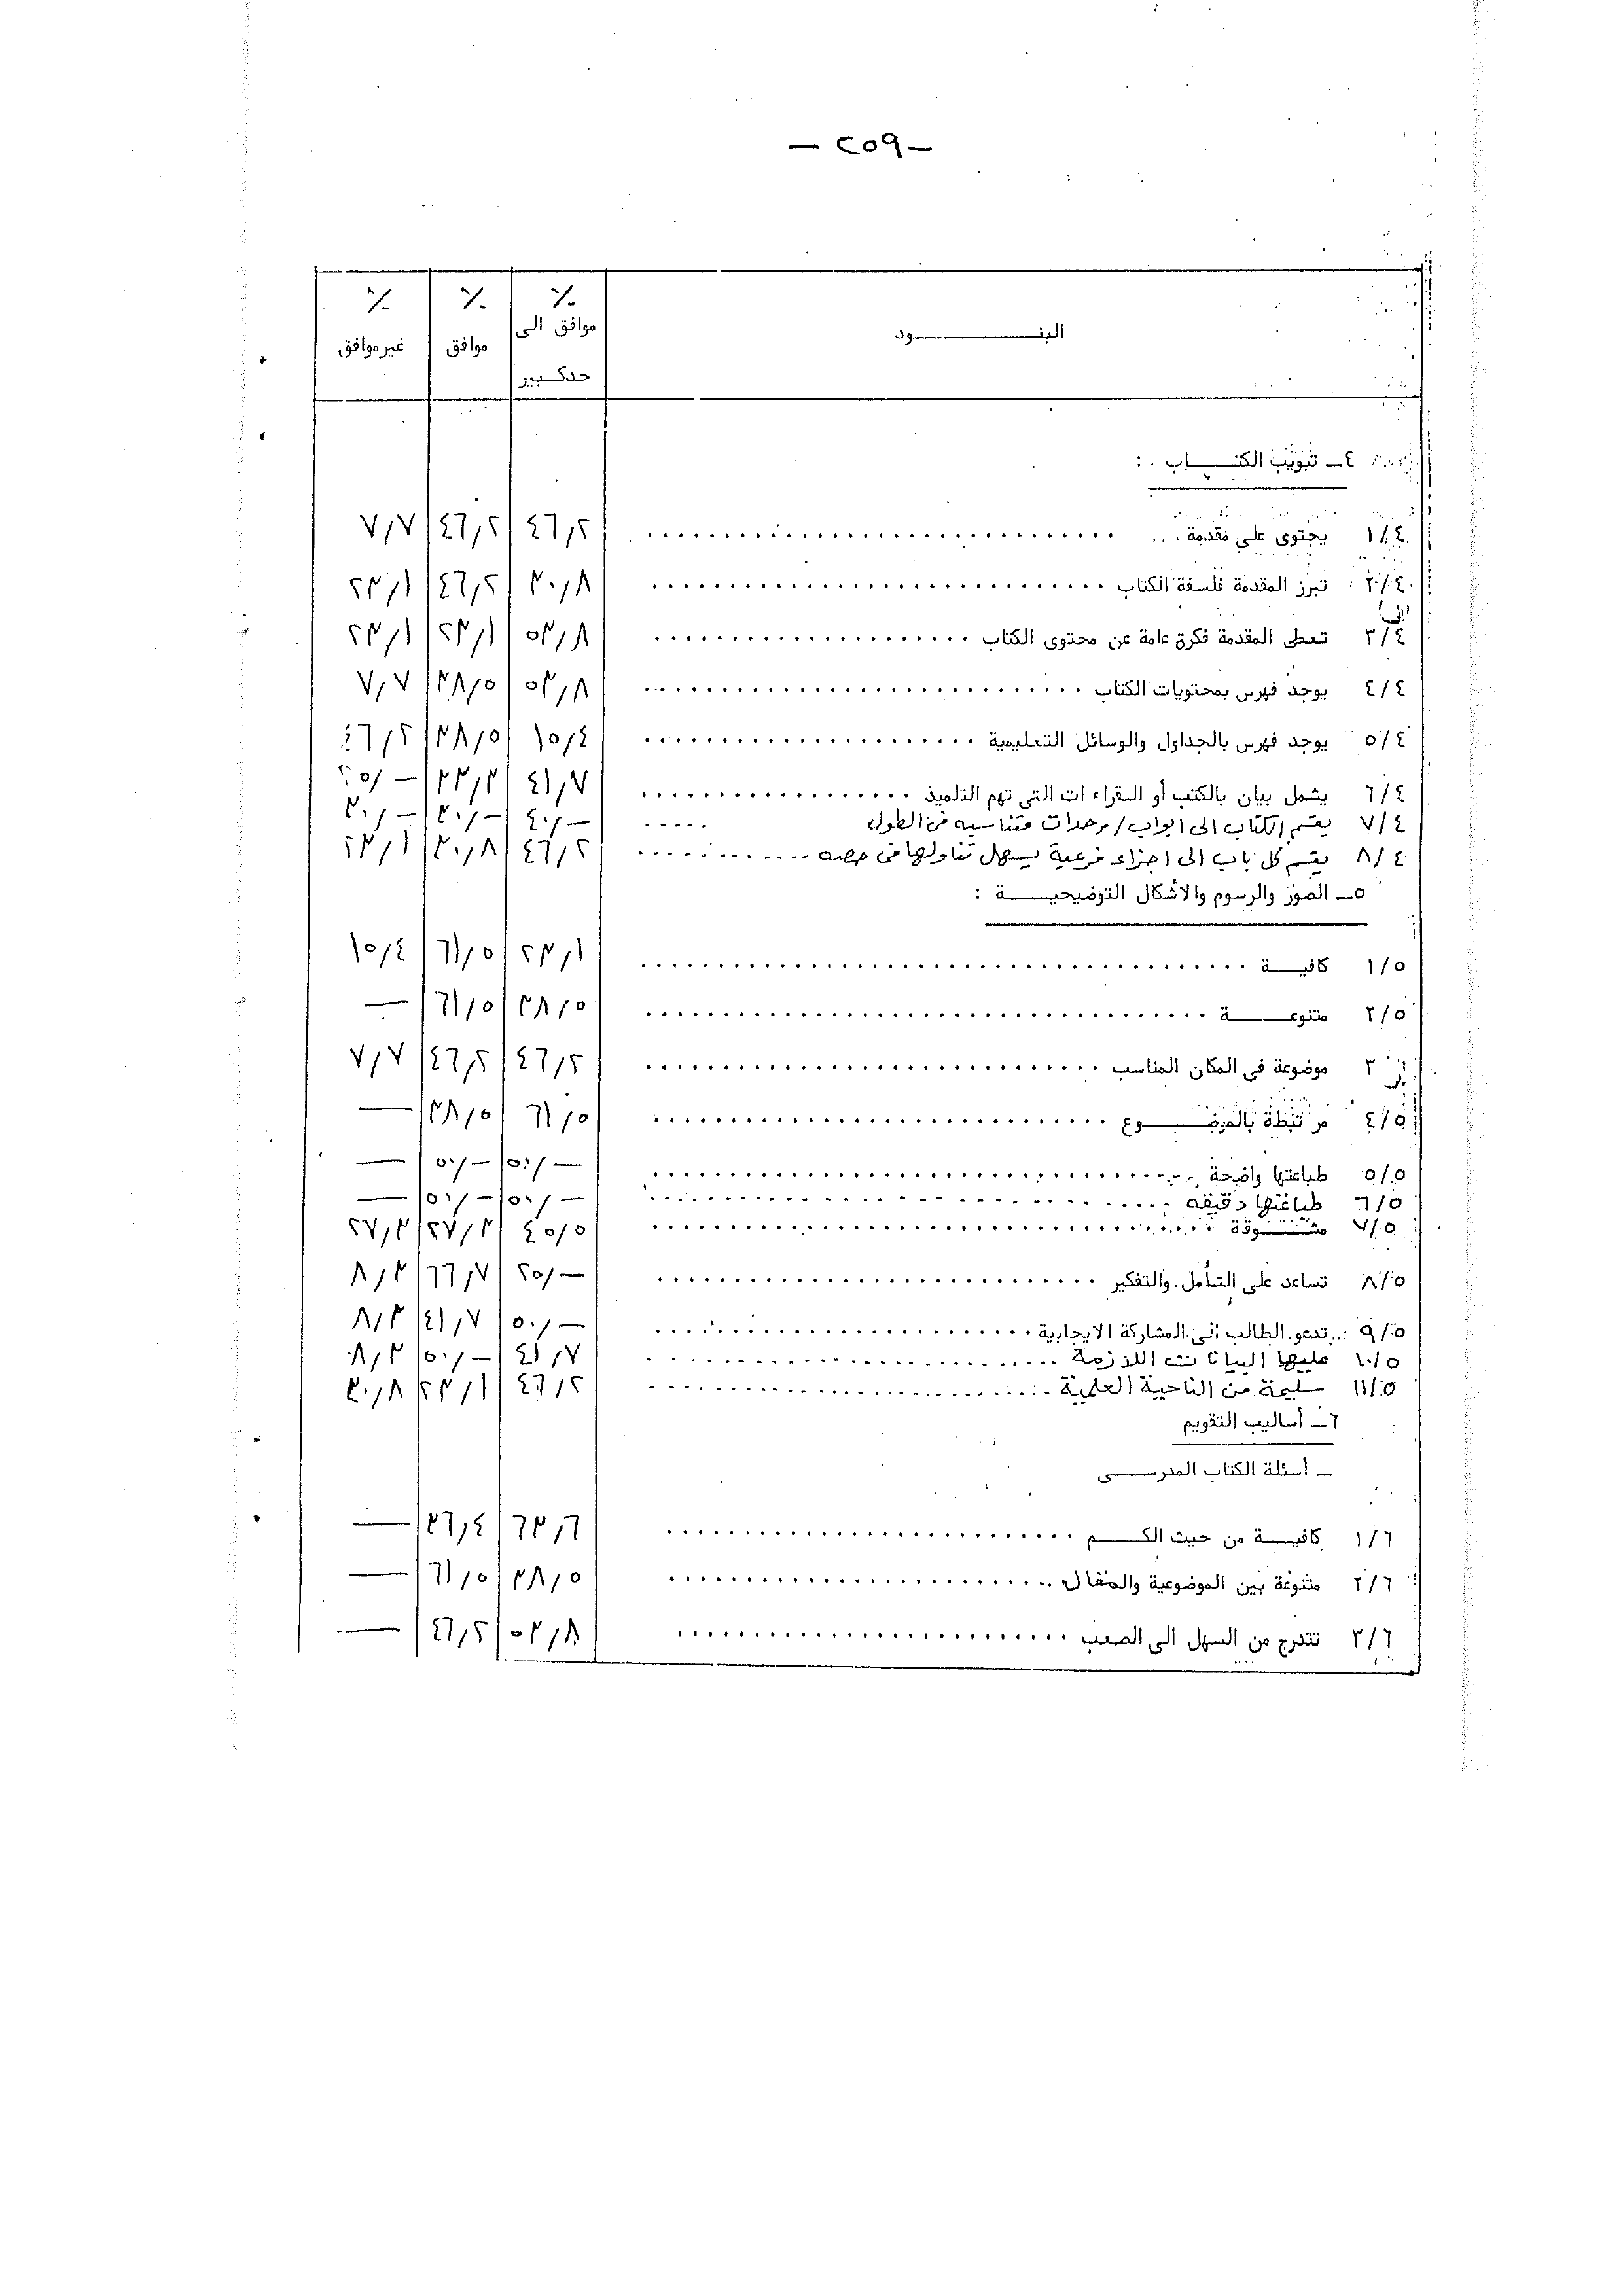 — ٢٥٩ —
البنـــــود ٪ موافق الى حد كبير ٪ موافق ٪ غير موافق
٤ـ تبويب الكتـــاب :
١/٤ يحتوى على مقدمة ٤٦,٢ ٤٦,٢ ٧,٧
٢/٤ تبرز المقدمة فلسفة الكتاب ٣٠,٨ ٤٦,٢ ٢٣,١
٣/٤ تعطى المقدمة فكرة عامة عن محتوى الكتاب ٥٣,٨ ٢٣,١ ٢٣,١
٤/٤ يوجد فهرس بمحتويات الكتاب ٥٣,٨ ٣٨,٥ ٧,٧
٥/٤ يوجد فهرس بالجداول والوسائل التعليمية ١٥,٤ ٣٨,٥ ٤٦,٢
٦/٤ يشمل بيان بالكتب أو القراءات التى تهم التلميذ ٤١,٧ ٣٣,٣ ٢٥,—
٧/٤ يقسم الكتاب الى ابواب / وحدات متناسبه فى الطول ٤٠,— ٣٠,— ٣٠,—
٨/٤ يقسم كل باب الى اجزاء فرعية يسهل تناولها فى حصه ٤٦,٢ ٣٠,٨ ٢٣,١
٥ـ الصور والرسوم والأشكال التوضيحيـــة :
١/٥ كافيـــة ٢٣,١ ٦١,٥ ١٥,٤
٢/٥ متنوعـــة ٣٨,٥ ٦١,٥ —
٣ موضوعة فى المكان المناسب ٤٦,٢ ٤٦,٢ ٧,٧
٤/٥ مرتبطة بالموضـــوع ٦١,٥ ٣٨,٥ —
٥/٥ طباعتها واضحة ٥٠,— ٥٠,— —
٦/٥ طباعتها دقيقه ٥٠,— ٥٠,— —
٧/٥ مشـــوقة ٤٥,٥ ٢٧,٣ ٢٧,٣
٨/٥ تساعد على التأمل والتفكير ٢٥,— ٦٦,٧ ٨,٣
٩/٥ تدعو الطالب الى المشاركة الايجابية ٥٠,— ٤١,٧ ٨,٣
١٠/٥ عليها البيانات اللازمة ٤١,٧ ٥٠,— ٨,٣
١١/٥ سليمة من الناحية العلمية ٤٦,٢ ٢٣,١ ٣٠,٨
٦ـ أساليب التقويم
ـ أسئلة الكتاب المدرســـى
١/٦ كافيـــة من حيث الكـــم ٦٣,٦ ٣٦,٤ —
٢/٦ متنوعة بين الموضوعية والمقال ٣٨,٥ ٦١,٥ —
٣/٦ تتدرج من السهل الى الصعب ٥٣,٨ ٤٦,٢ —